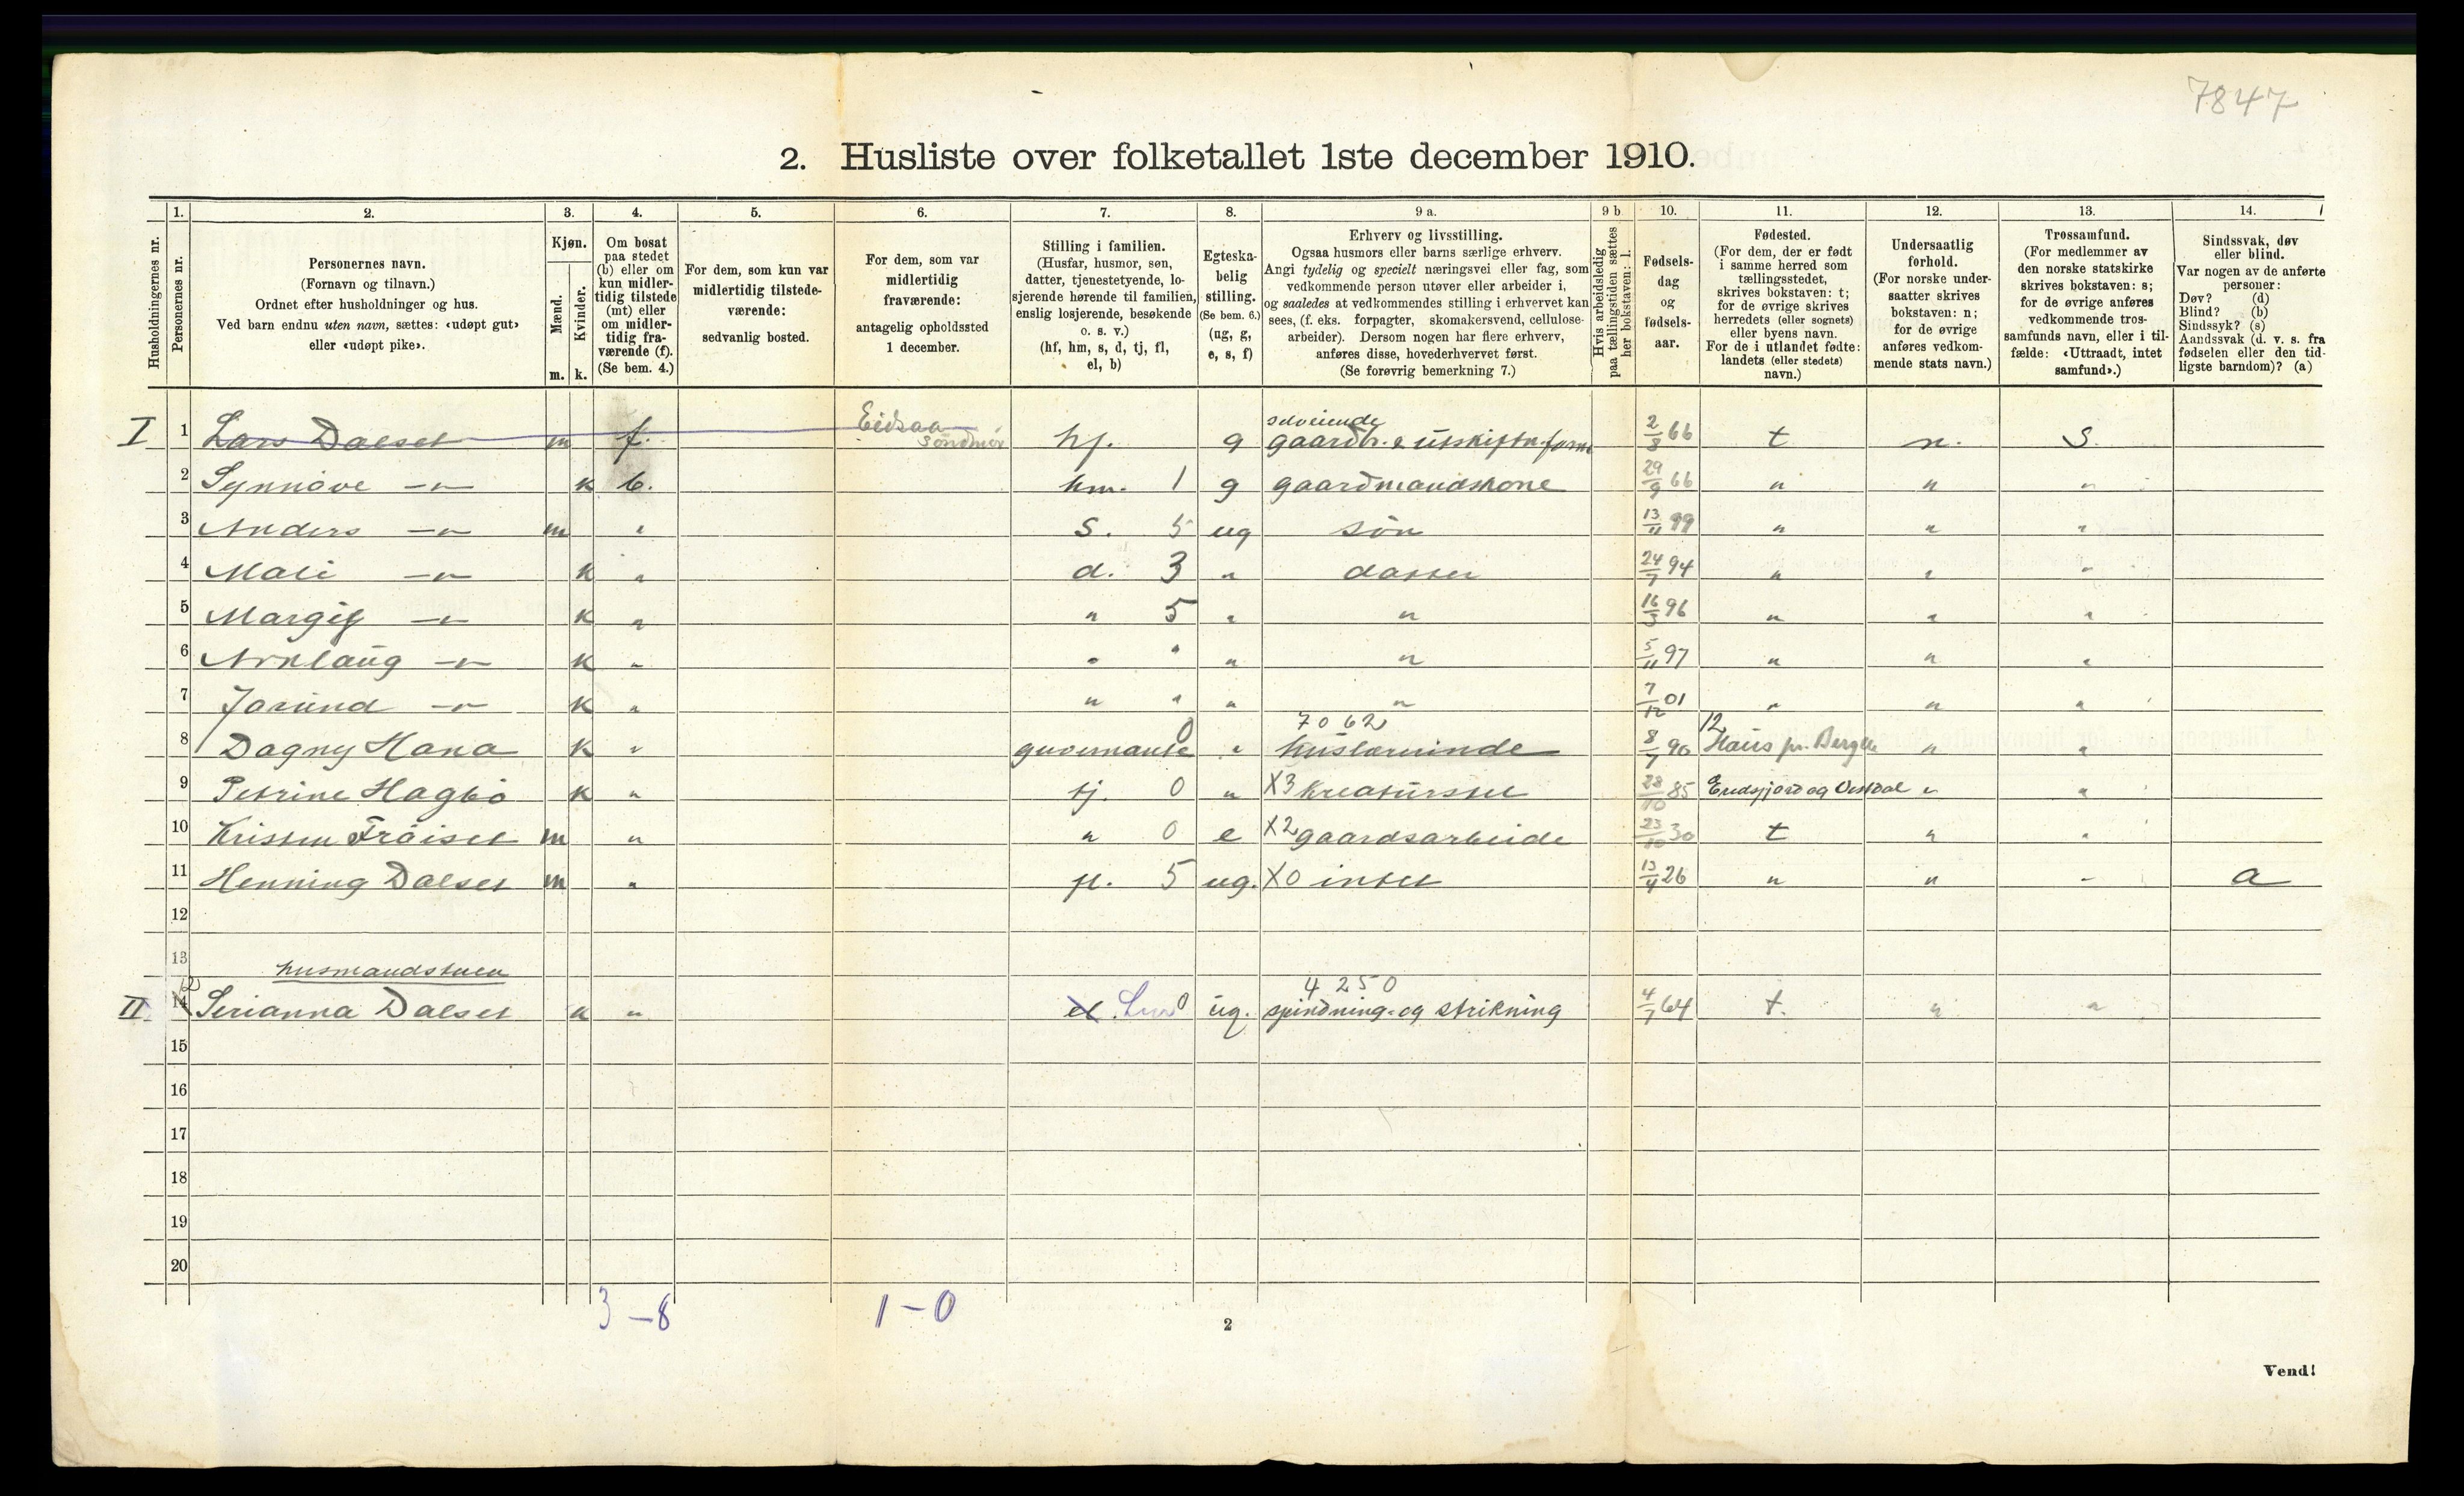 7847
2. Husliste over folketallet 1ste december 1910.
Husholdningernes nr.
1. Personernes nr.
2. Personernes navn. (Fornavn og tilnavn.) Ordnet efter husholdninger og hus. Ved barn endnu uten navn, sættes: «udøpt gut» eller «udøpt pike».
3. Kjøn. Mænd. m. Kvinder. k.
4. Om bosat paa stedet (b) eller om kun midler-tidig tilstede (mt) eller om midler-tidig fra-værende (f). (Se bem. 4.)
5. For dem, som kun var midlertidig tilstede-værende: sedvanlig bosted.
6. For dem, som var midlertidig fraværende: antagelig opholdssted 1 december.
7. Stilling i familien. (Husfar, husmor, søn, datter, tjenestetyende, lo-sjerende hørende til familien, enslig losjerende, besøkende o. s. v.) (hf, hm, s, d, tj, fl, el, b)
8. Egteska-belig stilling. (Se bem. 6.) (ug, g, e, s, f)
9 a. Erhverv og livsstilling. Ogsaa husmors eller barns særlige erhverv. Angi tydelig og specielt næringsvei eller fag, som vedkommende person utøver eller arbeider i, og saaledes at vedkommendes stilling i erhvervet kan sees, (f. eks. forpagter, skomakersvend, cellulose-arbeider). Dersom nogen har flere erhverv, anføres disse, hovederhvervet først. (Se forøvrig bemerkning 7.)
9 b Hvis arbeidsledig paa tællingstiden sættes her bokstaven: l.
10. Fødsels-dag og fødsels-aar.
11. Fødested. (For dem, der er født i samme herred som tællingsstedet, skrives bokstaven: t; for de øvrige skrives herredets (eller sognets) eller byens navn. For de i utlandet fødte: landets (eller stedets) navn.)
12. Undersaatlig forhold. (For norske under-saatter skrives bokstaven: n; for de øvrige anføres vedkom-mende stats navn.)
13. Trossamfund. (For medlemmer av den norske statskirke skrives bokstaven: s; for de øvrige anføres vedkommende tros-samfunds navn, eller i til-fælde: «Uttraadt, intet samfund».)
14. Sindssvak, døv eller blind. Var nogen av de anførte personer: Døv? (d) Blind? (b) Sindssyk? (s) Aandssvak (d. v. s. fra fødselen eller den tid-ligste barndom)? (a)
I 1 Lars Dalset m f. Eidsaa Söndmör hf. g selveiende gaardbr. & utskiftn.form 2/8 66 t n. S.
2 Synnöve —"— k b. hm. 1 g gaardmandskone 29/9 66 " " "
3 Anders —"— m " s. 5 ug sön 13/11 99 " " "
4 Mali —"— k " d. 3 " datter 24/7 94 " " "
5 Margit —"— k " " 5 " " 16/3 96 " " "
6 Arnlaug —"— k " " " " " 5/11 97 " " "
7 Jorund —"— k " " " " " 7/12 01 " " "
8 Dagny Hana k " guvernante 0 " 7062 huslærerinde 8/7 90 12 Haus pr. Bergen " "
9 Petrine Hagbö k " tj. 0 " X3 kreaturstel 28/10 85 Eredsfjord og Vistdal " "
10 Kristen Fröiset m " " 0 e X2 gaardsarbeide 23/10 30 t " "
11 Henning Dalset m " fl. 5 ug. X0 intet 13/4 26 " " " a
12
13 husmandstuen
II 14 12 Serianna Dalset k " el. 0 ug. 4250 spindning- og strikning 4/7 64 t. " "
15
16
17
18
19
20
3 – 8 1 – 0
2
Vend!